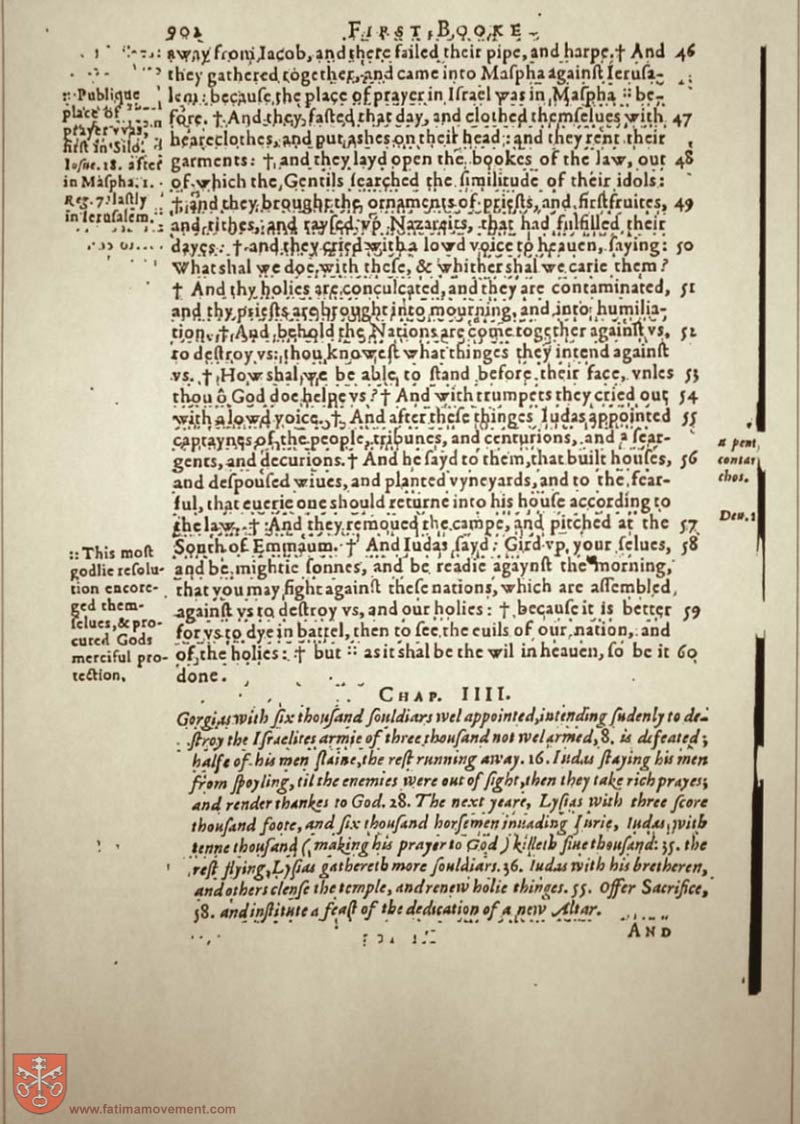 902 FIRST BOOKE
away from Iacob, and there failed their pipe, and harpe. † And 46
they gathered together, and came into Maspha against Ierusa-
lem: because the place of prayer in Israel was in Maspha :: be-
fore. † And they fasted that day, and clothed themselues with 47
heareclothes, and put ashes on their head: and they rent their
garments: † and they layd open the bookes of the law, out 48
of which the Gentils searched the similitude of their idols:
† and they brought the ornaments of priests, and firstfruites, 49
and tithes, and raysed vp Nazareits, that had fulfilled their
dayes: † and they cried with a lowd voice to heauen, saying: 50
What shal we doe with these, & whither shal we carie them?
† And thy holies are conculcated, and they are contaminated, 51
and thy priests are brought into mourning, and into humilia-
tion. † And behold the Nations are come together against vs, 52
to destroy vs: thou knowest what thinges they intend against
vs. † How shal we be able to stand before their face, vnles 53
thou ô God doe helpe vs? † And with trumpets they cried out 54
with a lowd voice. † And after these thinges Iudas appointed 55
captaynes of the people, tribunes, and centurions, and a sear-
gents, and decurions. † And he sayd to them, that built houses, 56
and despoused wiues, and planted vyneyards, and to the fear-
ful, that euerie one should returne into his house according to
the law. † And they remoued the campe, and pitched at the 57
South of Emmaum. † And Iudas sayd: Gird vp your selues, 58
and be mightie sonnes, and be readie agaynst the morning,
that you may fight against these nations, which are assembled
against vs to destroy vs, and our holies: † because it is better 59
for vs to dye in battel, then to see the euils of our nation, and
of the holies: † but :: as it shal be the wil in heauen, so be it 60
done.
:: Publique
place of
prayer vvas,
first in Silo.
Iosue. 18. after
in Maspha. 1.
Reg. 7. lastly
in Ierusalem.
a pent
contar
chos.
Deu.
:: This most
godlie resolu-
tion encore-
ged them-
selues, & pro-
cured Gods
merciful pro-
tection.
CHAP. IIII.
Gorgias with six thousand souldiars wel appointed, intending sudenly to de-
stroy the Israelites armie of three thousand not wel armed, 8. is defeated;
halfe of his men slaine, the rest running away. 16. Iudas staying his men
from spoyling, til the enemies were out of sight, then they take rich prayes;
and render thankes to God. 28. The next yeare, Lysias with three score
thousand foote, and six thousand horsemen inuading Iurie, Iudas with
tenne thousand (making his prayer to God) killeth fiue thousand: 35. the
rest flying, Lysias gathereth more souldiars. 36. Iudas with his bretheren,
and others clense the temple, and renew holie thinges. 55. Offer Sacrifice,
58. and institute a feast of the dedication of a new Altar.
AND
www.fatimamovement.com